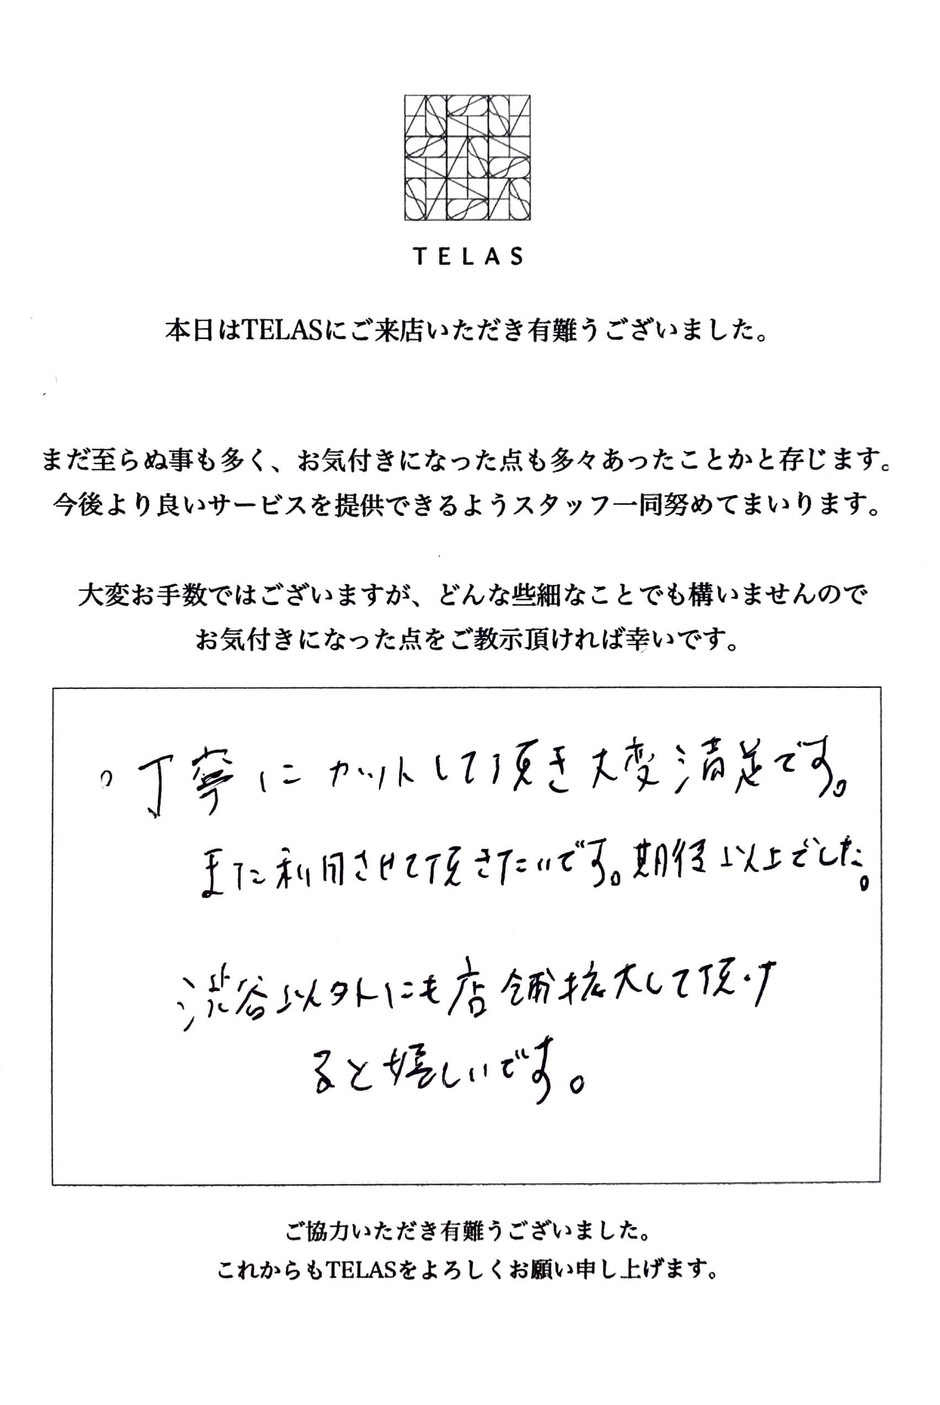 TELAS
本日はTELASにご来店いただき有難うございました。
まだ至らぬ事も多く、お気付きになった点も多々あったことかと存じます。
今後より良いサービスを提供できるようスタッフ一同努めてまいります。
大変お手数ではございますが、どんな些細なことでも構いませんので
お気付きになった点をご教示頂ければ幸いです。
。丁寧にカットして頂き大変満足です。
また利用させて頂きたいです。期待以上でした。
渋谷以外にも店舗拡大して頂け
ると嬉しいです。
ご協力いただき有難うございました。
これからもTELASをよろしくお願い申し上げます。